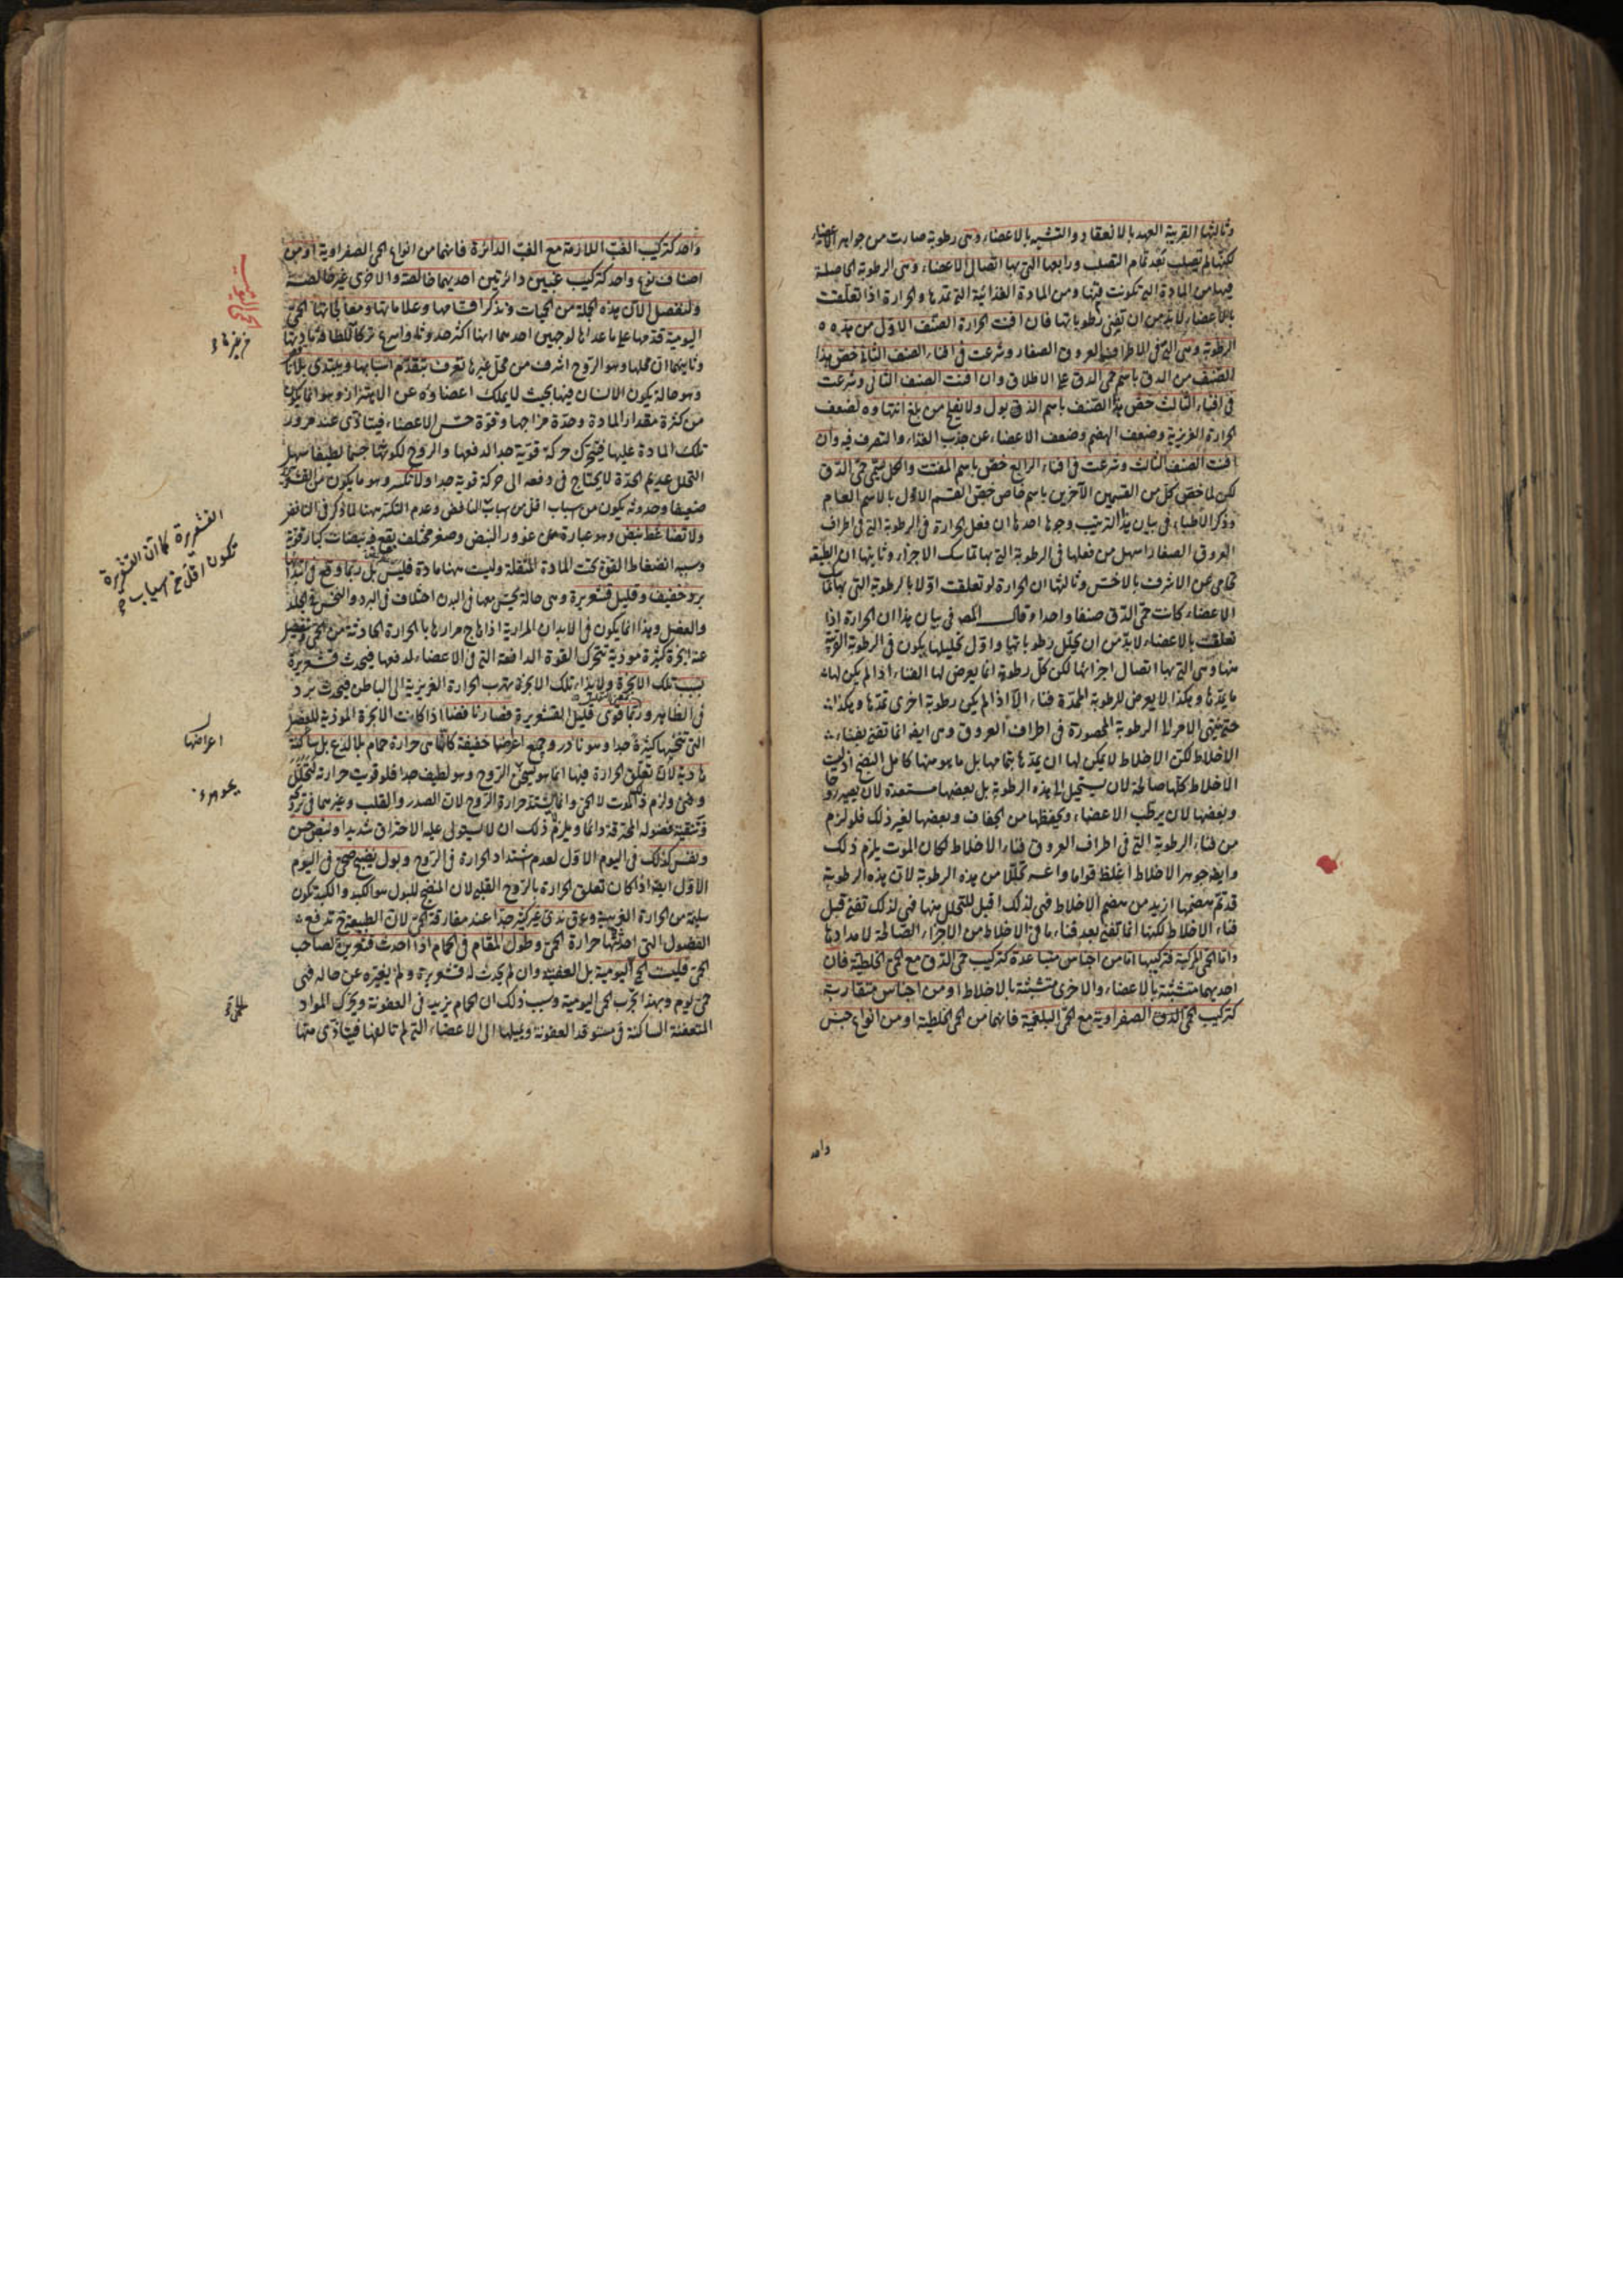 وثالثها القريبة العهد بالانعقاد والتشبه بالاعضاء وهى رطوبة صارت من جواهر الاعضاء
لكنها لم تصلب بعد تمام التصلب ورابعها التى بها اتصال الاعضاء وهى الرطوبة الحاصلة
فيها من المادة التى تكونت منها ومن المادة الغذائية التى تمدها والحرارة اذا تعلقت
بالاعضاء لابد من ان تفنى رطوباتها فان افنت الحرارة الصنف الاول من هذه
الرطوبة وهى التى فى اطراف العروق الصغار وشرعت فى افناء الصنف الثانى خص هذا
الصنف من الدق باسم حمى الدق على الاطلاق وان افنت الصنف الثانى وشرعت
فى افناء الثالث خص هذا الصنف باسم الذبول ولا يفلح من بلغ انتهاءه لضعف
الحرارة الغريزية وضعف الهضم وضعف الاعضاء عن جذب الغذاء والتصرف فيه وان
افنت الصنف الثالث وشرعت فى افناء الرابع خص باسم المفتت والكل يسمى حمى الدق
لكن لما خص كل من القسمين الآخرين باسم خاص خص القسم الاول بالاسم العام
وذكر الاطباء فى بيان هذا الترتيب وجوها احدها ان فعل الحرارة فى الرطوبة التى فى اطراف
العروق الصغار اسهل من فعلها فى الرطوبة التى بها تماسك الاجزاء وثانيها ان الطبيعة
تحامى عن الاشرف بالاخس وثالثها ان الحرارة لو تعلقت اولا بالرطوبة التى بها
الاعضاء كانت حمى الدق صنفا واحدا وقال المص فى بيان هذا ان الحرارة اذا
تعلقت بالاعضاء لابد من ان تحلل رطوباتها واول تحليلها يكون فى الرطوبة القريبة
منها وهى التى بها اتصال اجزائها لكن كل رطوبة انما يعرض لها الفناء اذا لم يكن لها
ما يمدها وهكذا لا يعرض للرطوبة الممدة فناء الا اذا لم يكن رطوبة اخرى تمدها وهكذا
حتى ينتهى الامر الى الرطوبة المحصورة فى اطراف العروق وهى ايضا انما تفنى بفناء
الاخلاط لكن الاخلاط لا يمكن لها ان يمدها بتمامها بل ما هو منها كامل النضج اذ ليست
الاخلاط كلها صالحة لان يستحيل الى هذه الرطوبة بل بعضها مستعدة لان يصير
وبعضها لان يرطب الاعضاء ويحفظها من الجفاف وبعضها لغير ذلك فلو لزم
من فناء الرطوبة التى فى اطراف العروق فناء الاخلاط لكان الموت يلزم ذلك
وايضا جوهر الاخلاط اغلظ قواما واعسر تحللا من هذه الرطوبة لان هذه الرطوبة
قد تم هضمها ازيد من هضم الاخلاط فهى لذلك اقبل للتحلل منها فهى لذلك تفنى قبل
فناء الاخلاط لكنها انما تفنى بعد فناء ما فى الاخلاط من الاجزاء الصالحة لامدادها
واما الحمى المركبة فتركيبها اما من اجناس متباعدة كتركيب حمى الدق مع الحمى الخلطية فان
احديهما متشبثة بالاعضاء والاخرى متشبثة بالاخلاط او من اجناس متقاربة
كتركيب الحمى الصفراوية مع الحمى البلغمية فانهما من الحمى الخلطية او من انواع جنس
واحد
واحد كتركيب الغب اللازمة مع الغب الدائرة فانهما من انواع الحمى الصفراوية او من
اصناف نوع واحد كتركيب غبين دائرتين احديهما خالصة والاخرى غير خالصة
ولنفصل الآن هذه الجملة من الحميات ونذكر اقسامها وعلاماتها ومعالجاتها الحمى
اليومية قدمها على ما عداها لوجهين احدهما انها اكثر حدوثا واسرع
وثانيهما ان محلها وهو الروح اشرف من محل غيرها تعرف بتقدم اسبابها ويبتدى بلا
وهو حالة يكون الانسان فيها بحيث لا يملك اعضاؤه عن الاهتزاز وهو انما يكون
من كثرة مقدار المادة وحدة مزاجها وقوة حس الاعضاء فيتاذى عند مرور
تلك المادة عليها فيتحرك حركة قوية جدا لدفعها والروح لكونها جسما لطيفا سهل
التحلل عديم الحدة لا يحتاج فى دفعه الى حركة قوية جدا ولا تكسر وهو ما يكون من
ضعيفا وحدوثه يكون من اسباب اقل من اسباب النافض وعدم التكسر ههنا لما ذكر فى النافض
ولا تضاغط نبض وهو عبارة عن غؤور النبض وصغر مختلف يقع فيه نبضات كبار قوية
وسببه انضغاط القوة تحت المادة المثقلة وليست ههنا مادة فليس بل ربما وقع فى ابتدائها
برد خفيف وقليل قشعريرة وهى حالة يحس معها فى البدن اختلاف فى البرد والنخس فى الجلد
والعضل وهذا انما يكون فى الابدان المرارية اذا هاج مرارها بالحرارة الحادثة من الحمى
عنه ابخرة كثيرة موذية تتحرك القوة الدافعة التى فى الاعضاء لدفعها فيحدث قشعريرة
بسبب تلك الابخرة ولايذاء تلك الابخرة تهرب الحرارة الغريزية الى الباطن فيحدث برد
فى الظاهر وربما قوى قليل القشعريرة فصار نافضا اذا كانت الابخرة الموذية للعضل
التى كثيرة جدا وهو نادر وجميع اعراضها خفيفة كانها من حرارة حمام بلا لذع بل ساكنة
هادية لان تعلق الحرارة فيها انما هو بالروح وهو لطيف جدا فلو قويت حرارته لتحلل
وفنى ولزم الموت لا الحمى وانما لا يشتد حرارة الروح لان الصدر والقلب وغيرهما فى
وتنقية فضوله المحترقة دائما ويلزم ذلك ان لا يستولى عليه الاحتراق شديدا ونبض حسن
ونفس كذلك فى اليوم الاول لعدم اشتداد الحرارة فى الروح وبول نضيج صحى فى اليوم
الاول ايضا اذا كان تعلق الحرارة بالروح القلبى لان المنضج للبول هو الكبد والكبد تكون
سليمة من الحرارة الغريبة وعرق ندى غير كثير جدا عند مفارقة الحمى لان الطبيعة تدفع
الفضول التى احدثتها حرارة الحمى وطول المقام فى الحمام اذا احدث قشعريرة لصاحب
الحمى فليست الحمى اليومية بل العفنية وان لم يحدث له قشعريرة ولم يغيره عن حاله فهى
حمى يوم وبهذا تجرب الحمى اليومية وسبب ذلك ان الحمام يزيد فى العفونة ويحرك المواد
المتعفنة الساكنة فى مستوقد العفونة ويميلها الى الاعضاء التى لم تالفها فيتاذى منها
القشعريرة كما ان القشعريرة
تكون اقل من اسباب
اعراضها
بجوهره